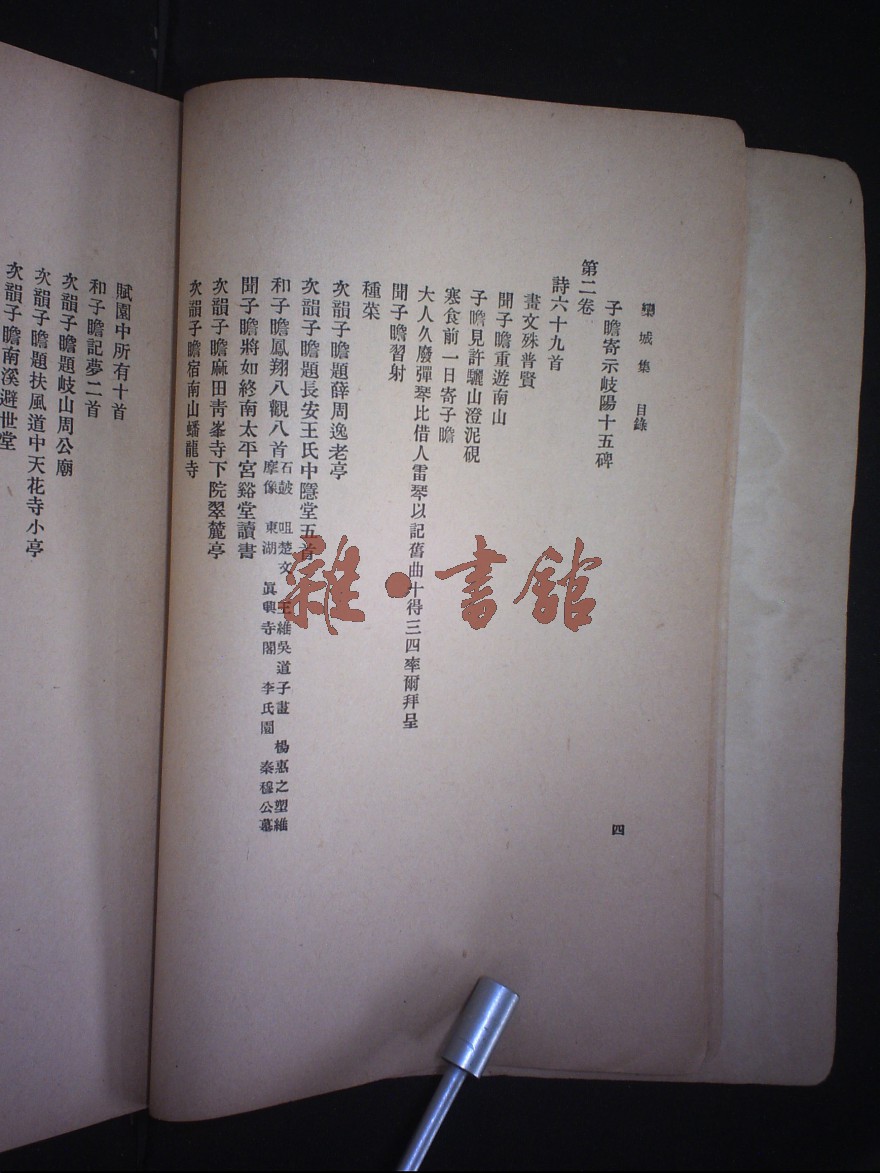 欒城集 目錄
四
子瞻寄示岐陽十五碑
第二卷
詩六十九首
畫文殊普賢
聞子瞻重遊南山
子瞻見許驪山澄泥硯
寒食前一日寄子瞻
大人久廢彈琴比借人雷琴以記舊曲十得三四率爾拜呈
聞子瞻習射
種菜
次韻子瞻題薛周逸老亭
次韻子瞻題長安王氏中隱堂五首
和子瞻鳳翔八觀八首 石鼓 咀楚文 王維吳道子畫 楊惠之塑維
摩像 東湖 眞興寺閣 李氏園 秦穆公墓
聞子瞻將如終南太平宮谿堂讀書
次韻子瞻麻田靑峯寺下院翠麓亭
次韻子瞻宿南山蟠龍寺
賦園中所有十首
和子瞻記夢二首
次韻子瞻題岐山周公廟
次韻子瞻題扶風道中天花寺小亭
次韻子瞻南溪避世堂
雜·書舘